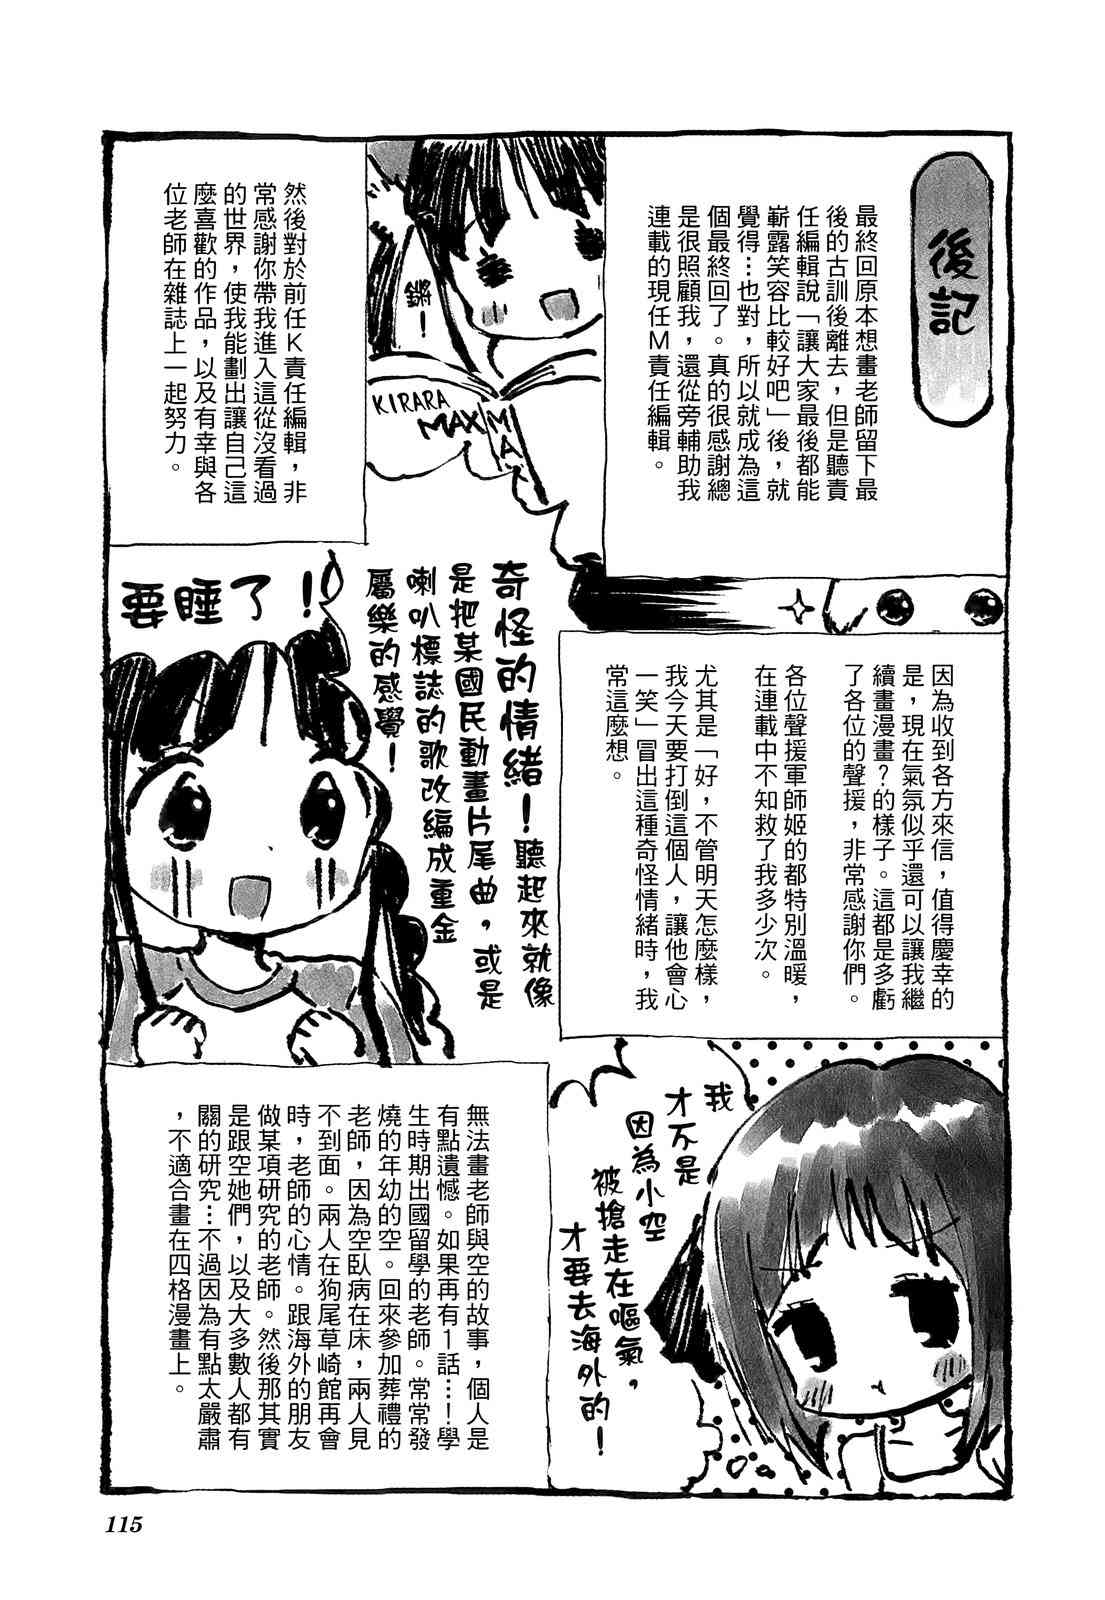 後記
最終回原本想畫老師留下最
後的古訓後離去，但是聽責
任編輯說「讓大家最後都能
嶄露笑容比較好吧」後，就
覺得…也對，所以就成為這
個最終回了。真的很感謝總
是很照顧我，還從旁輔助我
連載的現任M責任編輯。
鏘！
KIRARA
MAX
MA
然後對於前任K責任編輯，非
常感謝你帶我進入這從沒看過
的世界，使我能劃出讓自己這
麼喜歡的作品，以及有幸與各
位老師在雜誌上一起努力。
因為收到各方來信，值得慶幸的
是，現在氣氛似乎還可以讓我繼
續畫漫畫？的樣子。這都是多虧
了各位的聲援，非常感謝你們。
各位聲援軍師姬的都特別溫暖，
在連載中不知救了我多少次。
尤其是「好，不管明天怎麼樣，
我今天要打倒這個人，讓他會心
一笑」冒出這種奇怪情緒時，我
常這麼想。
奇怪的情緒！聽起來就像
是把某國民動畫片尾曲，或是
喇叭標誌的歌改編成重金
屬樂的感覺！
要睡了！
我
才不是
因為小空
被搶走在嘔氣，
才要去海外的！
無法畫老師與空的故事，個人是
有點遺憾。如果再有1話…！學
生時期出國留學的老師。常常發
燒的年幼的空。回來參加葬禮的
老師，因為空臥病在床，兩人見
不到面。兩人在狗尾草崎館再會
時，老師的心情。跟海外的朋友
做某項研究的老師。然後那其實
是跟空她們，以及大多數人都有
關的研究…不過因為有點太嚴肅
，不適合畫在四格漫畫上。
115